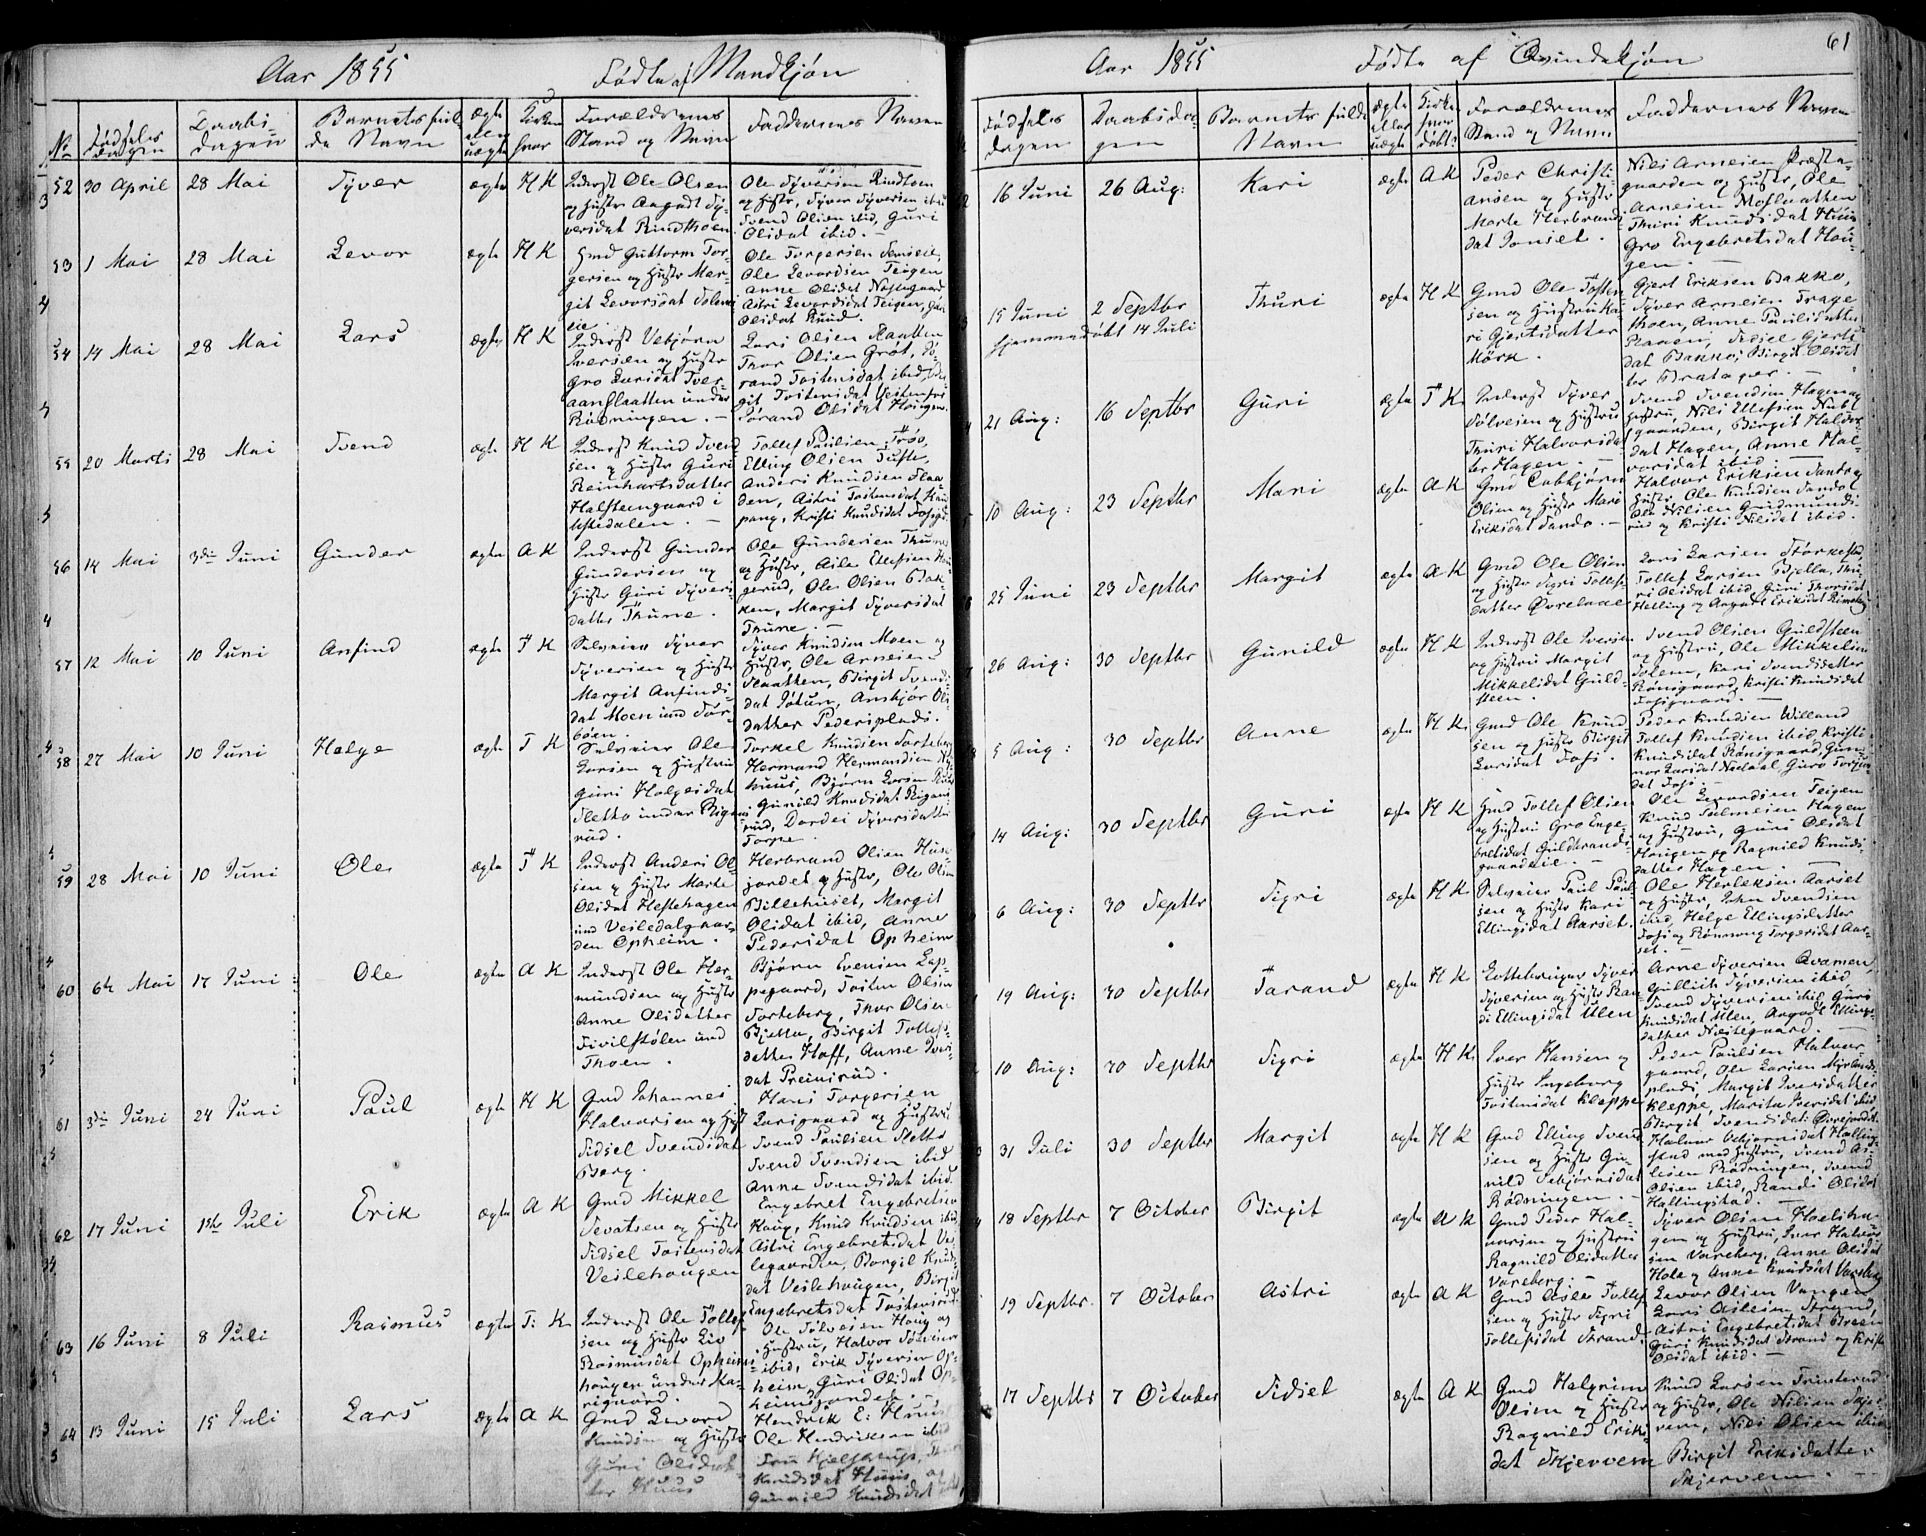 Aar 1855 Fødte af Mandkjøn
No Fødselsdagen Daabsdagen Barnets fulde Navn ægte eller uægte Kirken hvor Forældrenes Stand og Navn Faddernes Navn
52 30 April 28 Mai Syver ægte H K Inderst Ole Olsen
og Hustr Aagodt Sy-
versdat Rindthoen
Ole Syversen Rindtoen
og Hustr, Syver Syversen ibid
Svend Olsen ibid, Guri
Olsdat ibid. –
53 1 Mai 28 Mai Levor ægte H K Gmd Guttorm Tor-
gersen og Hustr Mar-
git Levorsdat
Ole Torgersen
Ole Levordsen Teigen
Anne Olsdat Næsegaard
Astri Levordsdat Teigen,
Olsdat Ruud.
54 14 Mai 28 Mai Lars ægte H K Inderst Vebjørn
Iversen og Hustr
Gro Larsdat Tver-
aanslaatten under
Rødningen. –
Lars Olsen Slaatten
Thor Olsen Grøt,
rand Tostensdat ibid,
git Tostensdat
Jørand Olsdat Hougen
55 20 Marts 28 Mai Svend ægte H K Inderst Knud Svend
sen og Hustr Guri
Reinhartsdatter
Halsteengaard i
Uvedalen. –
Tollef Paulsen Trøo,
Elling Olsen Tufte,
Anders Knudsen
den, Astri Tostensdat
pang, Kristi Knudsdat Fosgd
56 14 Mai 3die Juni Gunder ægte A K Inderst Gunder
Gundersen og
Hustr Guri Syvers-
datter Thune.
Ole Gundersen Thune
og Hustr, Asle Ellefsen
gerud, Ole Olsen Bak-
ken, Margit Syversdat
Thune. –
57 12 Mai 10 Juni Arfind ægte T K Selveier Syver
Syversen og Hustr
Margit Anfinds-
dat Moen und Tor-
bøen.
Syver Knudsen Moen og
Hustr, Ole Arnesen
Slaatten, Birgit Svends-
dat Jotun, Anskjør Ols
datter Pedersplads.
58 27 Mai 10 Juni Helge ægte T K Selveier Ole
Larsen og Hustru
Guri Helgesdat
Sletto under Rigens
rud.
Torkel Knudsen Torteberg
Hermand Hermandsen
huus, Bjørn Larsen
Gunild Knudsdat Rigens
rud, Dordei Syversdatter
Torpe
59 28 Mai 10 Juni Ole ægte T K Inderst Anders Ol-
sen og Hustr Marte
Olsdat Hestehagen
und Vesledalgaar-
den Opheim.
Herbrand Olsen Huse-
jordet og Hustr, Ole Olsen
Billehuset, Margit
Olsdat ibid, Anne
Pedersdat Opheim
60 6te Mai 17 Juni Ole ægte A K Inderst Ole Her-
mundsen og Hustr
Anne Olsdatter
Sivilstølen und
Thoen.
Bjørn Evensen Lap-
pegaard, Tosten Olsen
Torteberg, Thor Olsen
Bjella, Birgit Tollefs-
datter Hoff, Anne Ivers-
dat Preinsrud.
61 3die Juni 24 Juni Paul ægte H K Gmd Johannes
Halvorsen og Hust
Sidsel Svendsdat
Berg.
Hans Torgersen
Larsgaard og Hustru
Svend Paulsen Sletto
Svend Svendsen ibid
Anne Svendsdat ibid
62 17 Juni 1ste Juli Erik ægte A K Gmd Mikkel
Sevatsen og Hustr
Sidsel Tostensdat
Veslehougen
Engebret Engebretsen
Houg, Knud Knudsen ibid
Astri Engebretsdat Ves-
legaarden, Borgil Knuds
dat Veslehougen, Birgit
Engebretsdat Tostensrud
63 16 Juni 8 Juli Rasmus ægte T: K Inderst Ole Tollef
sen og Hustr Liv
Rasmusdat Opheims-
hougen under
Ole Sølvesen Houg og
Hustru, Halvor
ibid, Erik Syversen Op-
heim, Guri Olsdat Op-
heimsjordet.
64 13 Juni 15 Juli Lars ægte A K Gmd Levord
Knudsen og Hustr
Guri Olsdat-
ter Huus
Hendrik E: Huus
Ole Hendriksen ibid
Knudsdat Huus og
Gunnild Knudsdat

Aar 1855 Fødte af Qvindekjøn 61
Fødselsdagen Daabsdagen Barnets fulde Navn ægte eller uægte Kirke hvor døbt? Forældrenes Stand og Navn Faddernes Navn
16 Juni 26 Aug: Kari ægte A K Peder Christi-
ansen og Hustr
Marte Herbrands
dat Jonset.
Nils Arnesen Præste-
gaarden og Hustr, Ole
Arnesen Moslaatten
Thuri Knudsdat Huus
Gro Engebretsdat Hou-
gen –
15 Juni 2 Septbr Thuri ægte H K
hjemmedøbt 14 Juli
Gmd Ole Tosten-
sen og Hustru Ka-
ri Gjertsdatter
Mørk.
Gjert Eriksen Bakko,
Syver Arnesen Trage-
thoen, Anne Paulsdatter
Sidsel Gjerts
dat Bakko, Birgit Olsdat
ter Brataker. –
21 Aug: 16 Septbr Guri ægte T K Inderst Syver
Sølvesen og Hustru
Thuri Halvorsdat
ter Hagen. –
Svend Svendsen Hagen og
Hustru, Nils Ellefsen Nubl
gaarden, Birgit Haldors
dat Hagen, Anne Hal-
vorsdat ibid. –
10 Aug: 23 Septbr Mari ægte A K Gmd Cobbjørn
Olsen og Hustr Mari
Eriksdat Sando. –
Halvor Eriksen Sando og
Hustr, Ole Knudsen Sando
Ole Nilsen Gudmunds-
rud og Kristi Nilsdat ibid.
25 Juni 23 Septbr Margit ægte A K Gmd Ole Olsen
og Hustr Sigri Tollefs
datter Øvrelae
Lars Larsen Storkeslad
Tollef Larsen Bjella, Thu-
ri Olsdat ibid, Guri Thorsdat
Helling og Aagodt Eriksdat
26 Aug: 30 Septbr Gunild ægte H K Inderst Ole Iversen
og Hustru Margit
Mikkelsdat Guld-
steen.
Svend Olsen Guldsteen
og Hustru, Ole Mikkelsen
Solem, Kari Svendsdatter
Rønsgaard, Kristi Knudsdat
Fossgaard. –
5 Aug: 30 Septbr Anne ægte H K Gmd Ole Knud
sen og Hustr Birgit
Larsdat Foss.
Peder Knudsen Willand
Tollef Knudsen ibid, Kristi
Knudsdat Rønsgaard, Gun-
nor Larsdat Guro
dat Foss –
14 Aug: 30 Septbr Guri ægte H K Gmd Tollef Olsen
og Hustru Gro Enge
bretsdat Guldbrands-
gaardeie. –
Ole Levordsen Teigen
Knud Salmesen Hagen
og Hustru, Guri Olsdat
Hougen og Ragnild Knuds-
datter Hagen. –
6 Aug: 30 Septbr Sigri ægte H K Selveier Paul Paul
sen og Hustr Kari
Ellingsdat Aarset.
Ole Herleksen Aarset
og Hustr, John Svendsen
ibid, Helge Ellingsdatter
Foss og Rønnoug Torgersdat Aar-
set. –
19 Aug: 30 Septbr Tarand ægte H K Rottebruger Syver
Syversen og Hustr Ran-
di Ellingsdat Ulen
Arne Syversen Qvamen,
Gullick Syversen ibid
Svend Syversen ibid Guri
Knudsdat Ulen, Aagodt Ellings
datter Næsegaard. –
10 Aug: 30 Septbr Sigri ægte H K Iver Hansen og
Hustr Ingeborg
Tostensdat Kleppe
Peder Paulsen Halvor
gaard, Ole Larsen Myrlands-
plads, Margit Iversdatter
Kleppe, Marita Iversdat ibid
Birgit Svendsdat
31 Juli 30 Septbr Margit ægte H K Gmd Elling Svend
sen og Hustr Gu-
nild Vebjørnsdat
Rødningen. –
Halvor Vebjørnsdat Halling-
stad med Hustru, Svend As-
lesen Rødningen, Svend
Olsen ibid, Randi Olsdat
Hallingstad. –
18 Septbr 7 October Birgit ægte A K Gmd Peder Hal-
vorsen og Hustru
Ragnild Olsdatter
Vareberg. –
Syver Olsen Hoelshu-
gen og Hustru, Iver Halvor
sen Vareberg, Anne Olsdat
Hole og Anne Knudsdat Vareberg
19 Septbr. 7 October Astri ægte A K Gmd Asle Tollef
sen og Hustr Sigri
Tollefsdat Strand.
Levor Olsen Vangen
Lars Aslesen Strand,
Astri Engebretsdat Breen
Guri Knudsdat Strand og Kristi
Olsdat ibid. –
17 Septbr 7 October Sidsel ægte A K Gmd Halgrim
Olsen og Hustr
Ragnild Eriks-
dat Skjervem
Knud Larsen
og Hustr, Ole Nilsen Skjer-
vem, Nils Olsen ibid
Birgit Eriksdatter
Skjervem. –